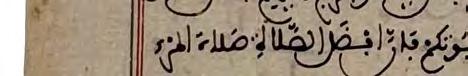 بيوتكم فإن افضل الصّلاة صلاة المرء